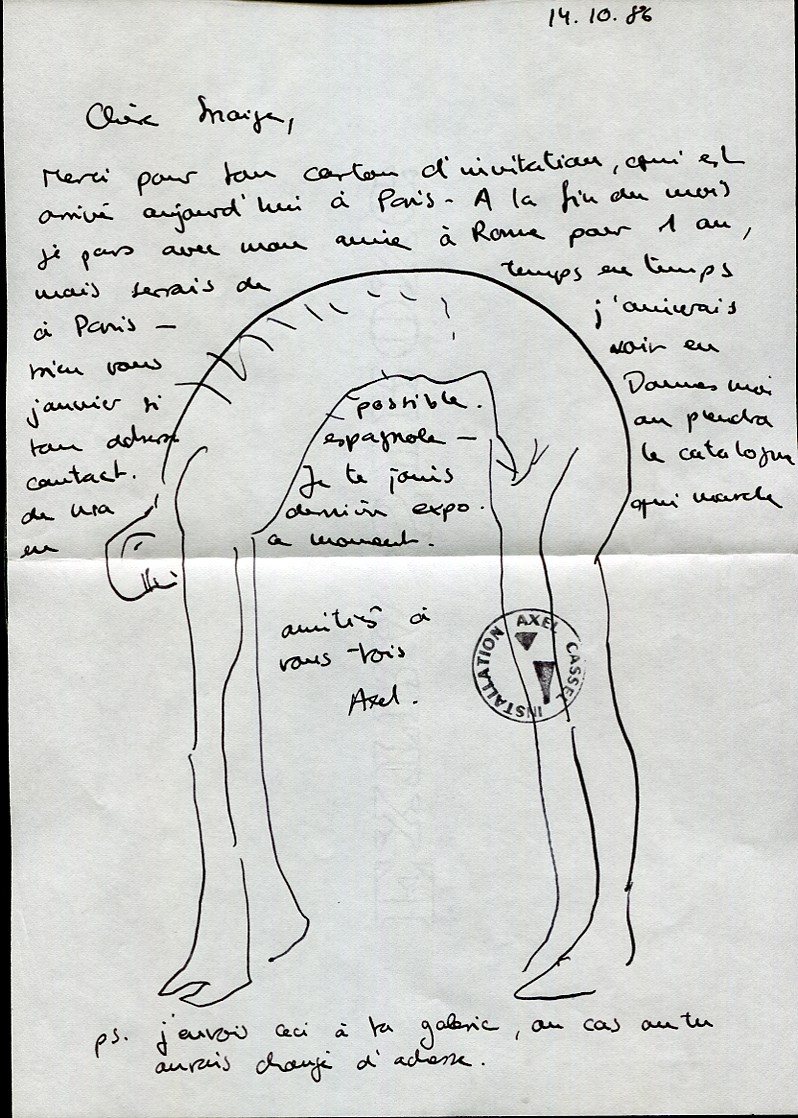 14.10.86
Chère
Merci pour ton carton d'invitation, qui est
arrivé aujourd'hui à Paris - A la fin du mois
je pars avec mon amie à Rome pour 1 an,
mais serrais de temps en temps
à Paris — j'aimerais
bien vous voir en
janvier si possible. Donnes moi
ton adresse espagnole — on prendra
contact. Je te joins le catalogue
de ma dernière expo. qui marche
en ce moment.
amitiés à
vous tois
Axel.
INSTALLATION AXEL CASSEL
ps. j'envois ceci à ta galerie, au cas ou tu
aurais changé d'adresse.